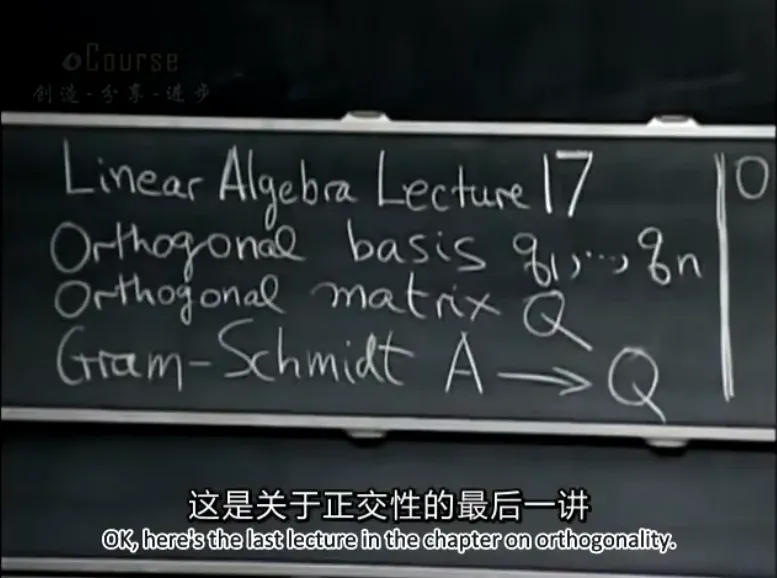 oCourse
创造-分享-进步
Linear Algebra Lecture 17
Orthogonal basis q1,...,qn
Orthogonal matrix Q
Gram-Schmidt A → Q
O
这是关于正交性的最后一讲
OK, here's the last lecture in the chapter on orthogonality.